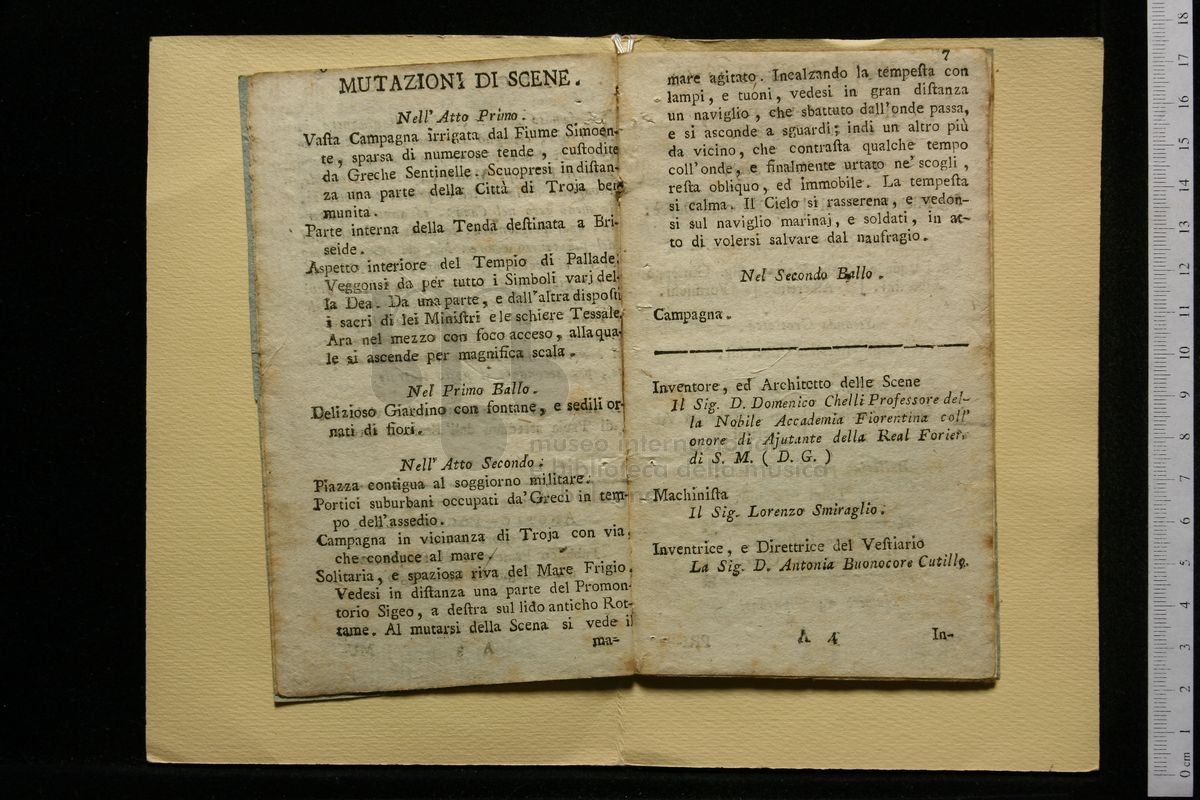 MUTAZIONI DI SCENE.
Nell' Atto Primo.
Vaſta Campagna irrigata dal Fiume Simoen-
te, sparsa di numerose tende, cuſtodite
da Greche Sentinelle. Scuopresi in diſtan-
za una parte della Città di Troja ben
munita.
Parte interna della Tenda deſtinata a Bri-
seide.
Aspetto interiore del Tempio di Pallade.
Veggonsi da per tutto i Simboli varj del-
la Dea. Da una parte, e dall'altra dispoſti
i sacri di lei Miniſtri e le schiere Tessale,
Ara nel mezzo con foco acceso, alla qua-
le si ascende per magnifica scala.
Nel Primo Ballo.
Delizioso Giardino con fontane, e sedili or-
nati di fiori.
Nell' Atto Secondo.
Piazza contigua al soggiorno militare.
Portici suburbani occupati da'Greci in tem-
po dell'assedio.
Campagna in vicinanza di Troja con via,
che conduce al mare.
Solitaria, e spaziosa riva del Mare Frigio.
Vedesi in diſtanza una parte del Promon-
torio Sigeo, a deſtra sul lido anticho Rot-
tame. Al mutarsi della Scena si vede il
ma-
7
mare agitato. Incalzando la tempeſta con
lampi, e tuoni, vedesi in gran diſtanza
un naviglio, che sbattuto dall'onde passa,
e si asconde a sguardi; indi un altro più
da vicino, che contraſta qualche tempo
coll'onde, e finalmente urtato ne' scogli,
reſta obliquo, ed immobile. La tempeſta
si calma. Il Cielo si rasserena, e vedon-
si sul naviglio marinaj, e soldati, in at-
to di volersi salvare dal naufragio.
Nel Secondo Ballo.
Campagna.
Inventore, ed Architetto delle Scene
Il Sig. D. Domenico Chelli Professore del-
la Nobile Accademia Fiorentina coll'
onore di Ajutante della Real Forier.
di S. M. ( D. G. )
Machiniſta
Il Sig. Lorenzo Smiraglio.
Inventrice, e Direttrice del Veſtiario
La Sig. D. Antonia Buonocore Cutillo.
A 4
In-
museo internazionale
e biblioteca della musica
0 cm 1 2 3 4 5 6 7 8 9 10 11 12 13 14 15 16 17 18